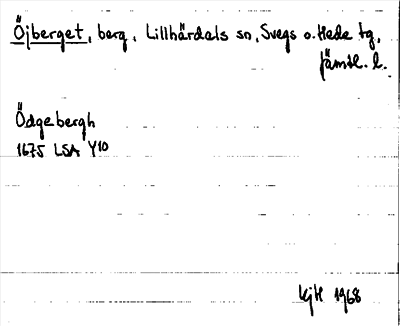 Öjberget, berg, Lillhärdals sn, Svegs o. Hede tg,
Jämtl. l.
Ödgebergh
1675 LSA Y10
KjH 1968